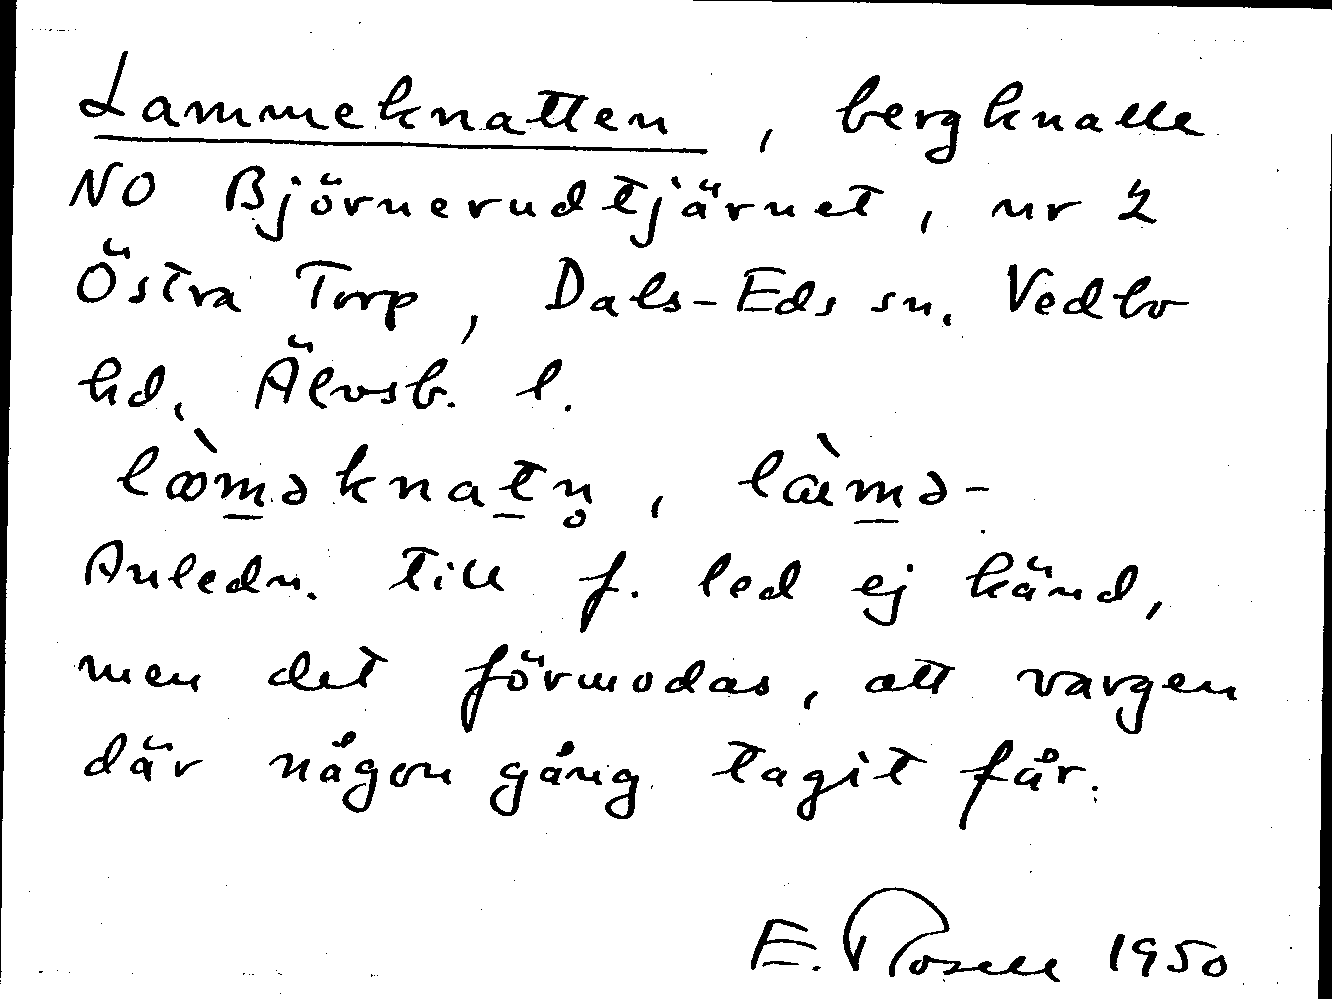 Lammeknatten, bergknalle
NO Björnerudtjärnet, nr 2
Östra Torp, Dals-Eds sn. Vedbo
hd. Älvsb. l.
lò᪶m̲əknat̲n̥, læ̀m̲ə-
Anledn. till f. led ej känd,
men det förmodas, att vargen
där någon gång tagit får.
E. Rosell 1950